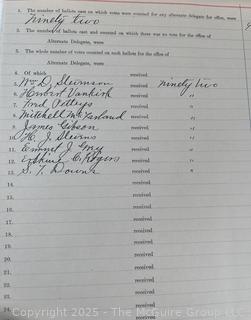 1. The number of ballots cast on which votes were counted for any alternate delegate for office, were
Ninety two
2. The number of ballots cast and counted on which there was no vote for the office of
Alternate Delegate, were
3. The whole number of votes counted on such ballots for the office of
Alternate Delegate, were
4. Of which received
5. Wm D. Stevenson received Ninety two
6. Herbert Vankirk received "
7. Fred Petteys received "
8. Mitchell McFarland received "
9. James Gibson received "
10. H. J. Stevens received "
11. Emmet J. Gray received "
12. Erskine C. Rogers received "
13. S. T. Downs received "
14. received
15. received
16. received
17. received
18. received
19. received
20. received
21. received
22. received
received
received
Copyright 2025 - The McGuire Group